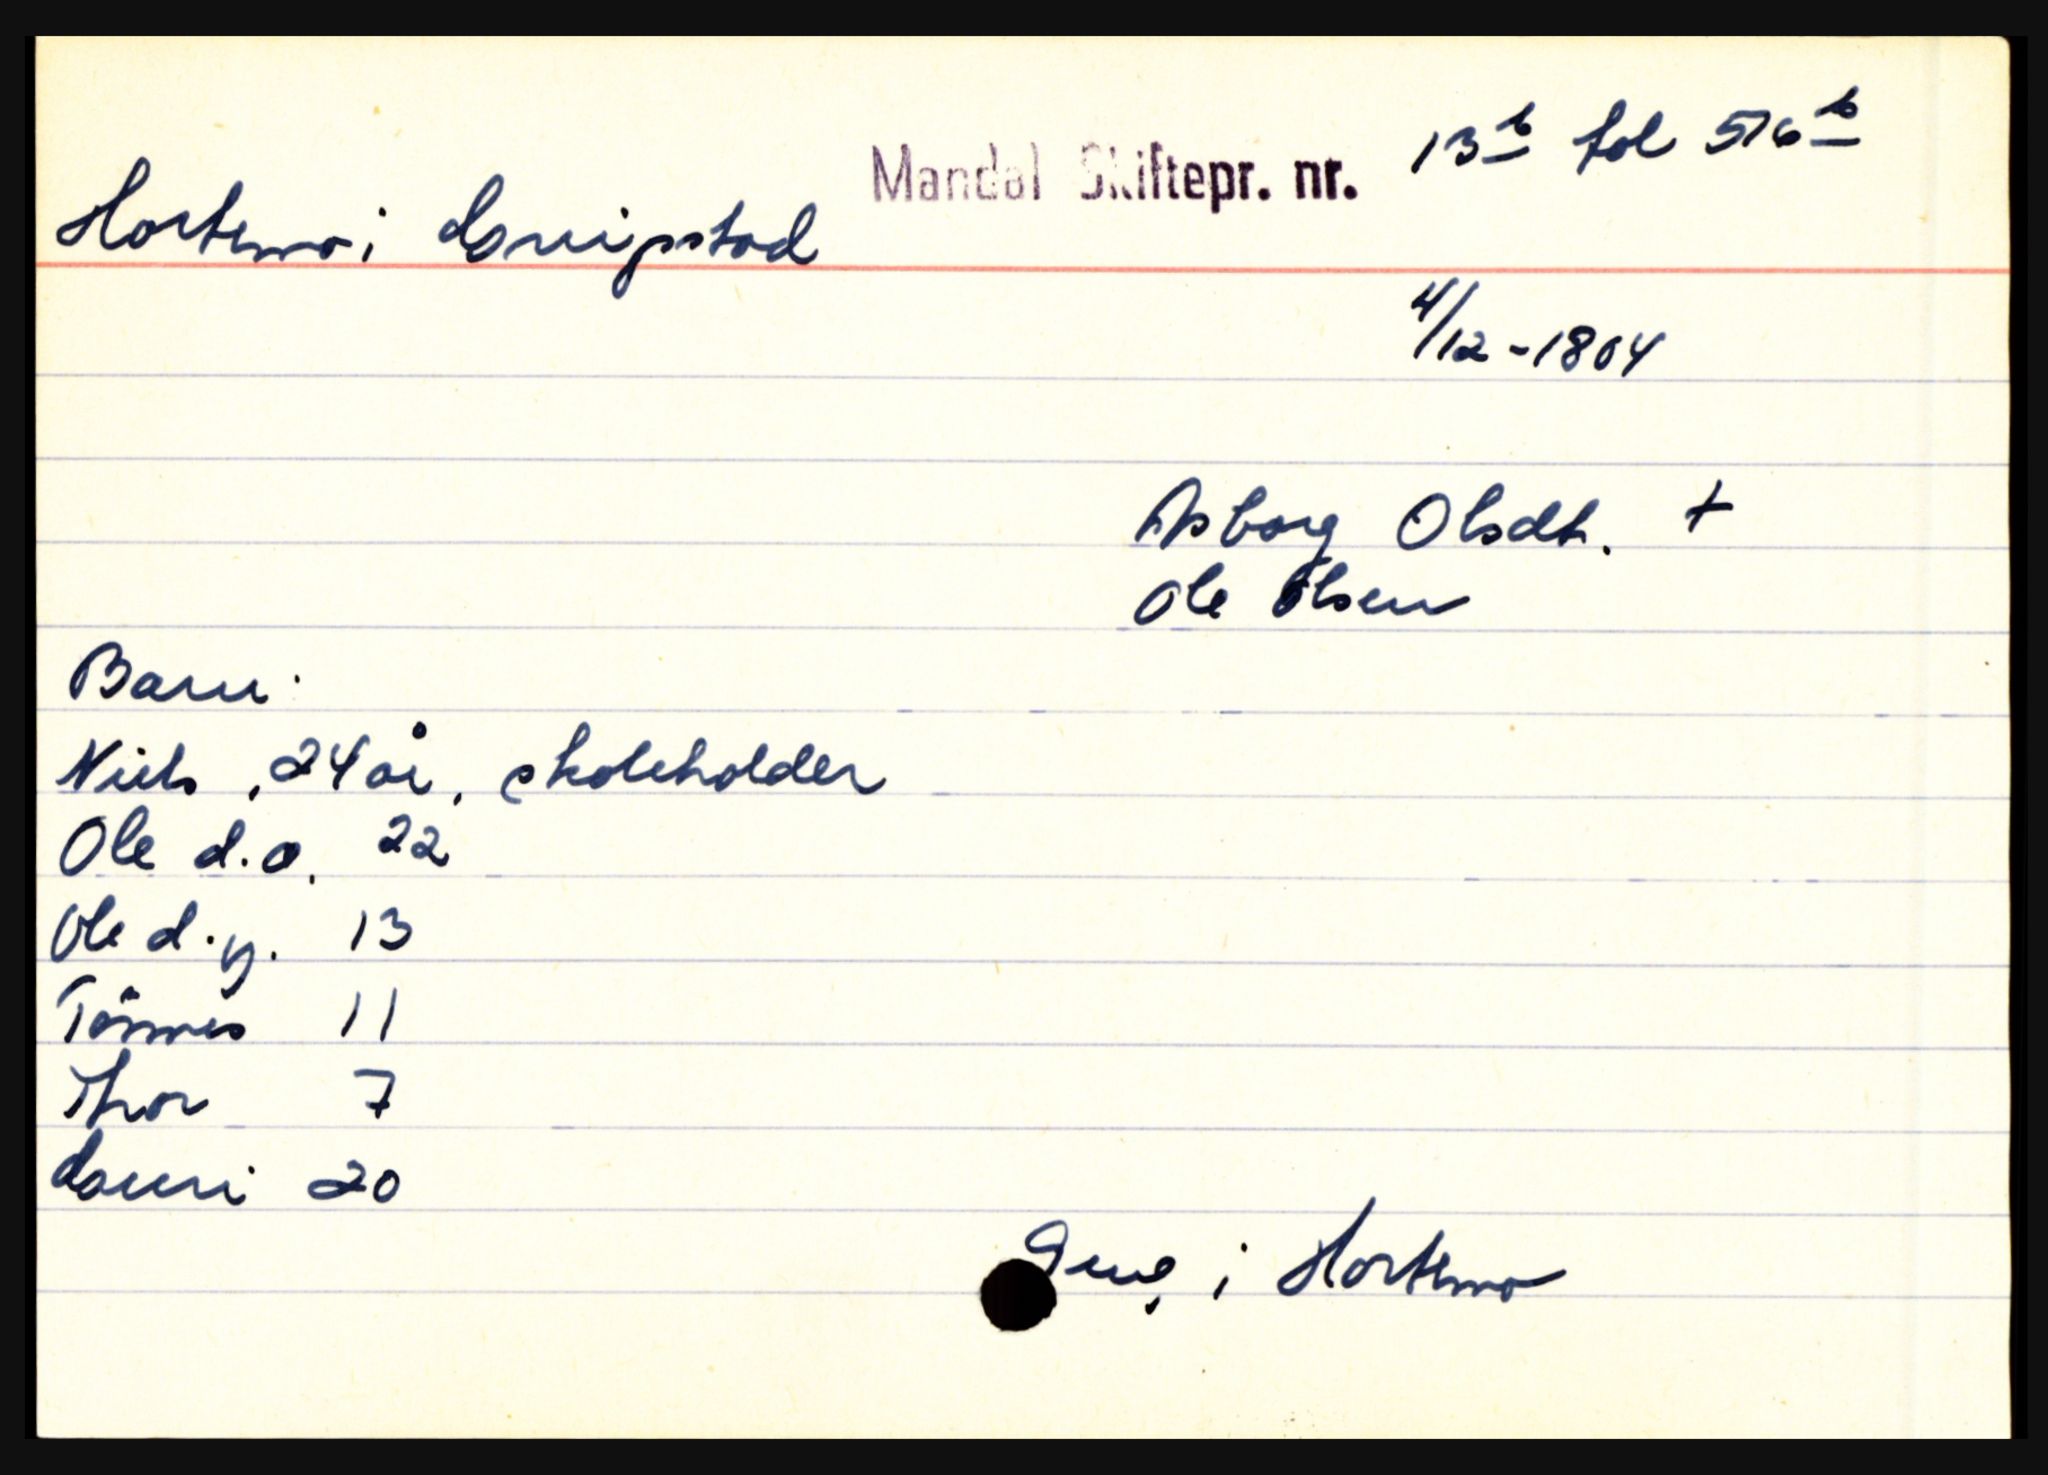 Mandal Skiftepr. nr. 13 b fol 576 b
Hortemo i Øvrigstad
4/12 - 1804
Asborg Olsdt. +
Ole Olsen
Barn:
Niels, 24 år, skoleholder
Ole d.e. 22
Ole d.y. 13
Tönnes 11
Thor 7
Gunri 20
i Hortemo